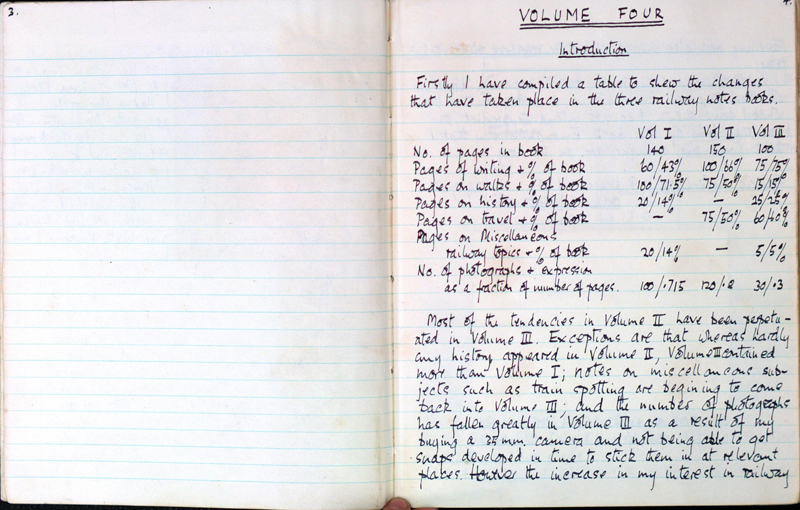 3.
4.
VOLUME FOUR
Introduction
Firstly I have compiled a table to shew the changes
that have taken place in the three railway notes books.
Vol I Vol II Vol III
No. of pages in book 140 150 100
Pages of writing & % of book 60/43% 100/66% 75/75%
Pages on walks & % of book 100/71.5% 75/50% 15/15%
Pages on history & % of book 20/14% — 25/25%
Pages on travel & % of book — 75/50% 60/40%
Pages on Miscellaneous
railway topics & % of book 20/14% — 5/5%
No. of photographs & expression
as a fraction of number of pages. 100/.715 120/.8 30/.3
Most of the tendencies in Volume II have been perpetu-
ated in Volume III. Exceptions are that whereas hardly
any history appeared in Volume II, Volume III contained
more than Volume I; notes on miscellaneous sub-
jects such as train spotting are begining to come
back into Volume III; and the number of photographs
has fallen greatly in Volume III as a result of my
buying a 35mm. camera and not being able to get
snaps developed in time to stick them in at relevant
places. However the increase in my interest in railway